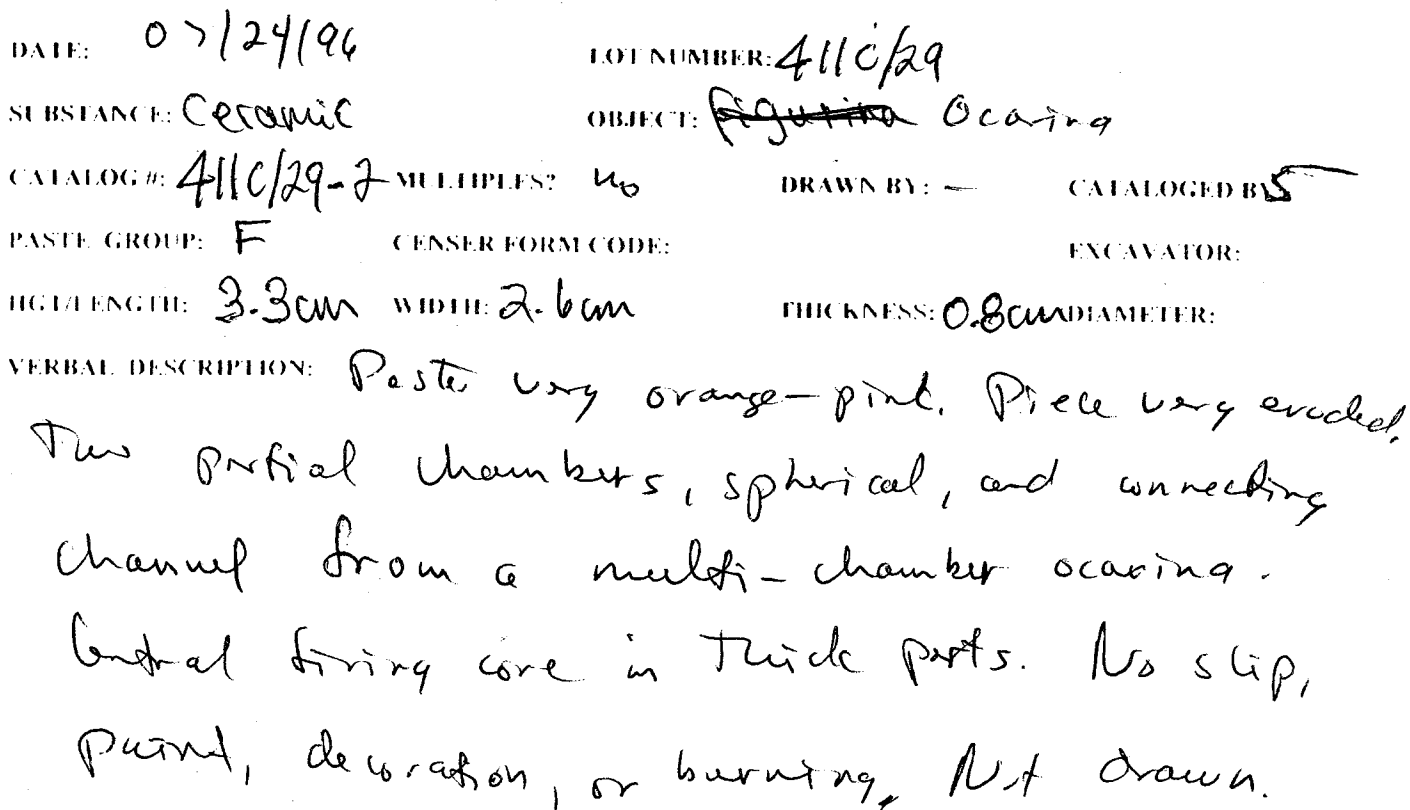 DATE: 07/24/96 LOT NUMBER: 411C/29
SUBSTANCE: Ceramic OBJECT: figurina Ocarina
CATALOG #: 411C/29-2 MULTIPLES? no DRAWN BY: — CATALOGED BY 5
PASTE GROUP: F CENSER FORM CODE: EXCAVATOR:
HGT/LENGTH: 3.3cm WIDTH: 2.6cm THICKNESS: 0.8cm DIAMETER:
VERBAL DESCRIPTION: Paste very orange-pink. Piece very eroded.
Two partial chambers, spherical, and connecting
channel from a multi-chamber ocarina.
Central firing core in thick parts. No slip,
paint, decoration, or burning. Not drawn.